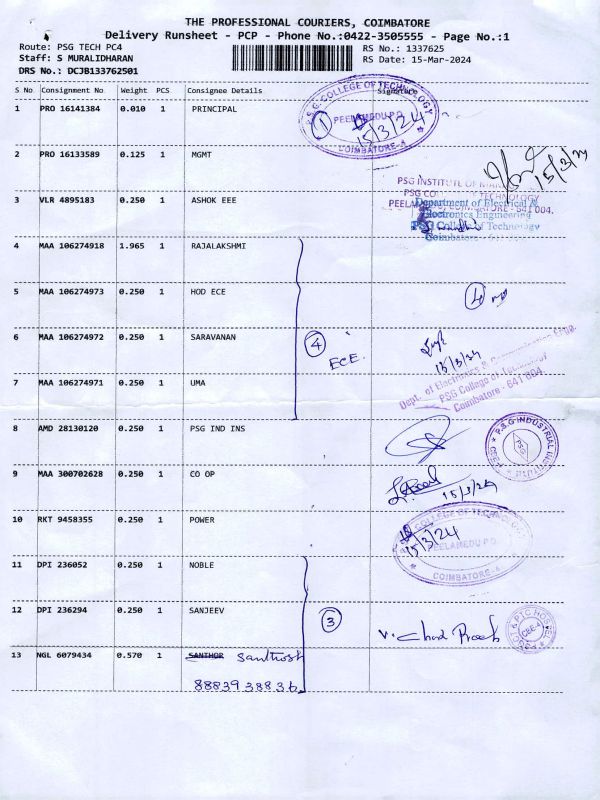 THE PROFESSIONAL COURIERS, COIMBATORE
Delivery Runsheet - PCP - Phone No.:0422-3505555 - Page No.:1
Route: PSG TECH PC4 RS No.: 1337625
Staff: S MURALIDHARAN RS Date: 15-Mar-2024
DRS No.: DCJB133762501
S No Consignment No Weight PCS Consignee Details Signature
1 PRO 16141384 0.010 1 PRINCIPAL
P.S.G. COLLEGE OF TECHNOLOGY
1
PEELAMEDU P.O.
15/3/24
COIMBATORE-4
2 PRO 16133589 0.125 1 MGMT
15/3/24
PSG INSTITUTE OF
3 VLR 4895183 0.250 1 ASHOK EEE
Department of Electrical &
Electronics Engineering
PSG College of Technology
Coimbatore - 641 004.
4 MAA 106274918 1.965 1 RAJALAKSHMI
5 MAA 106274973 0.250 1 HOD ECE
4
6 MAA 106274972 0.250 1 SARAVANAN
4
ECE.
15/3/24
7 MAA 106274971 0.250 1 UMA
Dept. of Electronics & Communication Engg.
PSG College of Technology
Coimbatore - 641 004
8 AMD 28130120 0.250 1 PSG IND INS
P.S.G INDUSTRIAL INSTITUTE
PSG
9 MAA 300702628 0.250 1 CO OP
15/3/24
10 RKT 9458355 0.250 1 POWER
COLLEGE OF TECHNOLOGY
15/3/24
PEELAMEDU P.O.
COIMBATORE-4
11 DPI 236052 0.250 1 NOBLE
12 DPI 236294 0.250 1 SANJEEV
3
V. Chand
13 NGL 6079434 0.570 1 SANTHOR Santhosh
8883938836